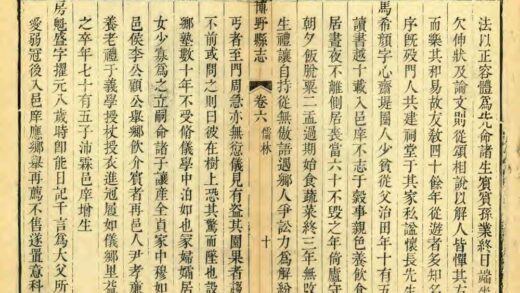 法以正容體為先命諸生賓賓孫業終日端坐
欠伸狀及論文則從頌相說以解人皆憚其方
而樂其和易故友敎四十餘年從遊者多知名
序旣歿門人共建祠堂于其家私謚懷長先生
馬希顏字心齋堤圈人少貧從父治田年十有五
讀書越十載入邑庠不志于穀事親色養飲食
居晝夜不離側居喪當六十不毀之年倚廬守
朝夕飯脫粟二盂過期始食蔬菜終三年無改
生禮讓自持從無傲語遇鄉人爭訟力為解紛
博野縣志 卷六 儒林 十
丐者至門周急亦無愆儀見有盜其園果者
不前或問之則曰彼在樹上恐其驚而墜也設
鄉塾數十年不受脩儀學中泊如也家婦孀居
女少寡為之立嗣命諸子讓產全貞家中穆如
邑侯李公顧公舉鄉飲介賓者再邑人尹孝廉
養老禮于義學授杖授衣進冠履如儀鄉里益
之卒年七十有五子沛霖邑庠增生
房魁盛字擢元八歲時即能日記千言為大父所
愛弱冠後入邑庠應鄉舉再薦不售遂置意科